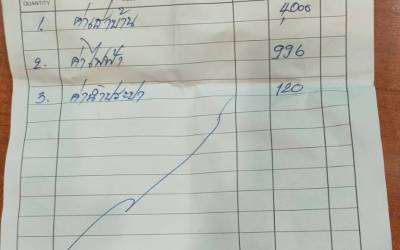 QUANTITY
1. ค่าเช่าบ้าน 4,000
2. ค่าไฟฟ้า 996
3. ค่าน้ำประปา 120